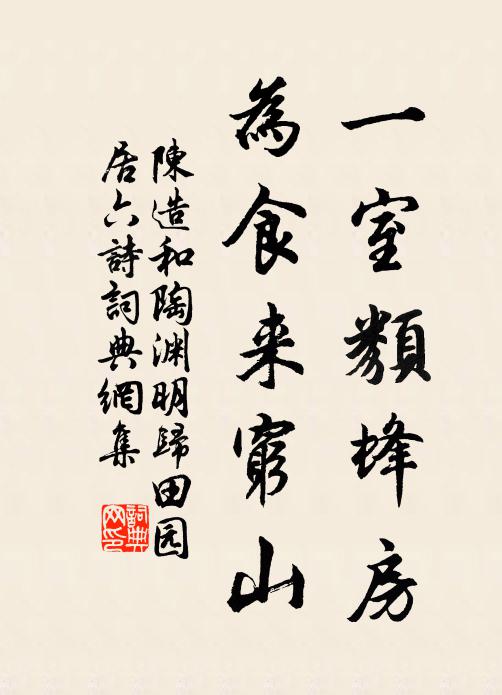 一室類蜂房
為食来窮山
陳造和陶渊明歸田园
居六詩詞典網集
詞典
网印